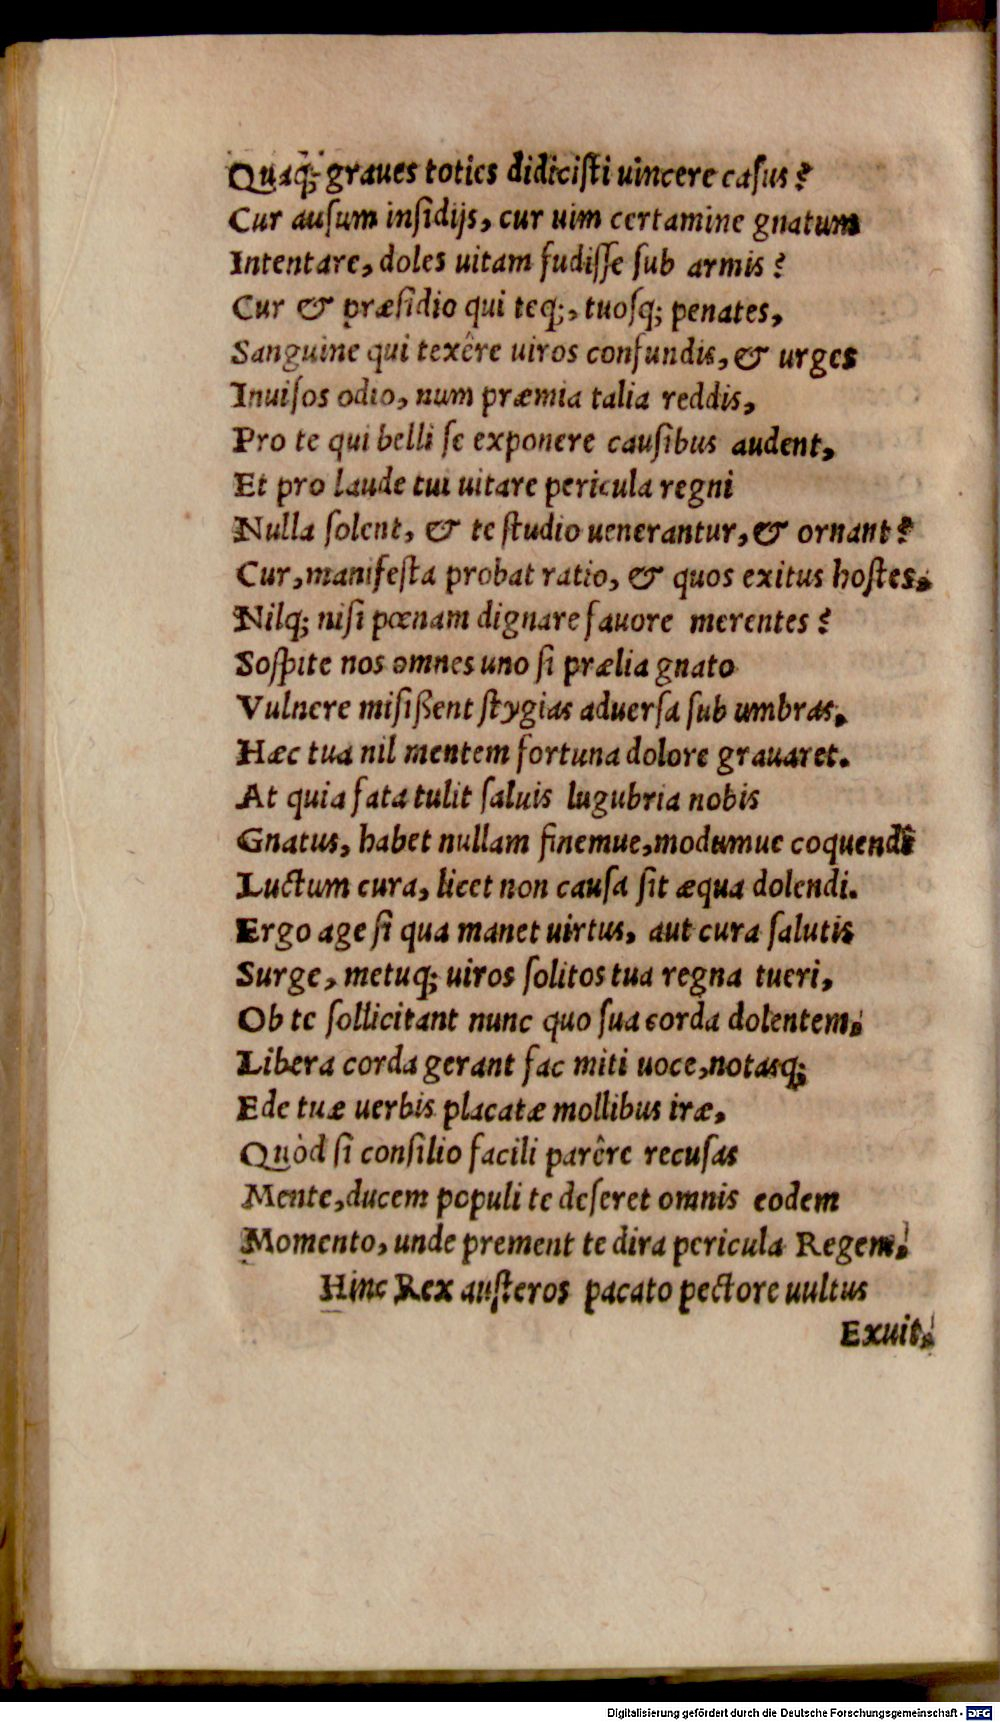 Quaq; graues toties didiciſti uincere caſus?
Cur auſum inſidijs, cur uim certamine gnatum
Intentare, doles uitam fudiſſe ſub armis?
Cur & præſidio qui teq;, tuoſq; penates,
Sanguine qui texêre uiros confundis, & urges
Inuiſos odio, num præmia talia reddis,
Pro te qui belli ſe exponere cauſibus audent,
Et pro laude tui uitare pericula regni
Nulla ſolent, & te ſtudio uenerantur, & ornant?
Cur, manifeſta probat ratio, & quos exitus hoſtes,
Nilq; niſi pœnam dignare fauore merentes?
Soſpite nos omnes uno ſi prælia gnato
Vulnere miſißent ſtygias aduerſa ſub umbras,
Hæc tua nil mentem fortuna dolore grauaret.
At quia fata tulit ſaluis lugubria nobis
Gnatus, habet nullam finemue, modumue coquendi
Luctum cura, licet non cauſa ſit æqua dolendi.
Ergo age ſi qua manet uirtus, aut cura ſalutis
Surge, metuq; uiros ſolitos tua regna tueri,
Ob te ſollicitant nunc quo ſua corda dolentem,
Libera corda gerant fac miti uoce, notasq;
Ede tuæ uerbis placatæ mollibus iræ,
Quòd ſi conſilio facili parêre recuſas
Mente, ducem populi te deſeret omnis eodem
Momento, unde prement te dira pericula Regem.
Hinc Rex auſteros pacato pectore uultus
Exuit,
Digitalisierung gefördert durch die Deutsche Forschungsgemeinschaft - DFG